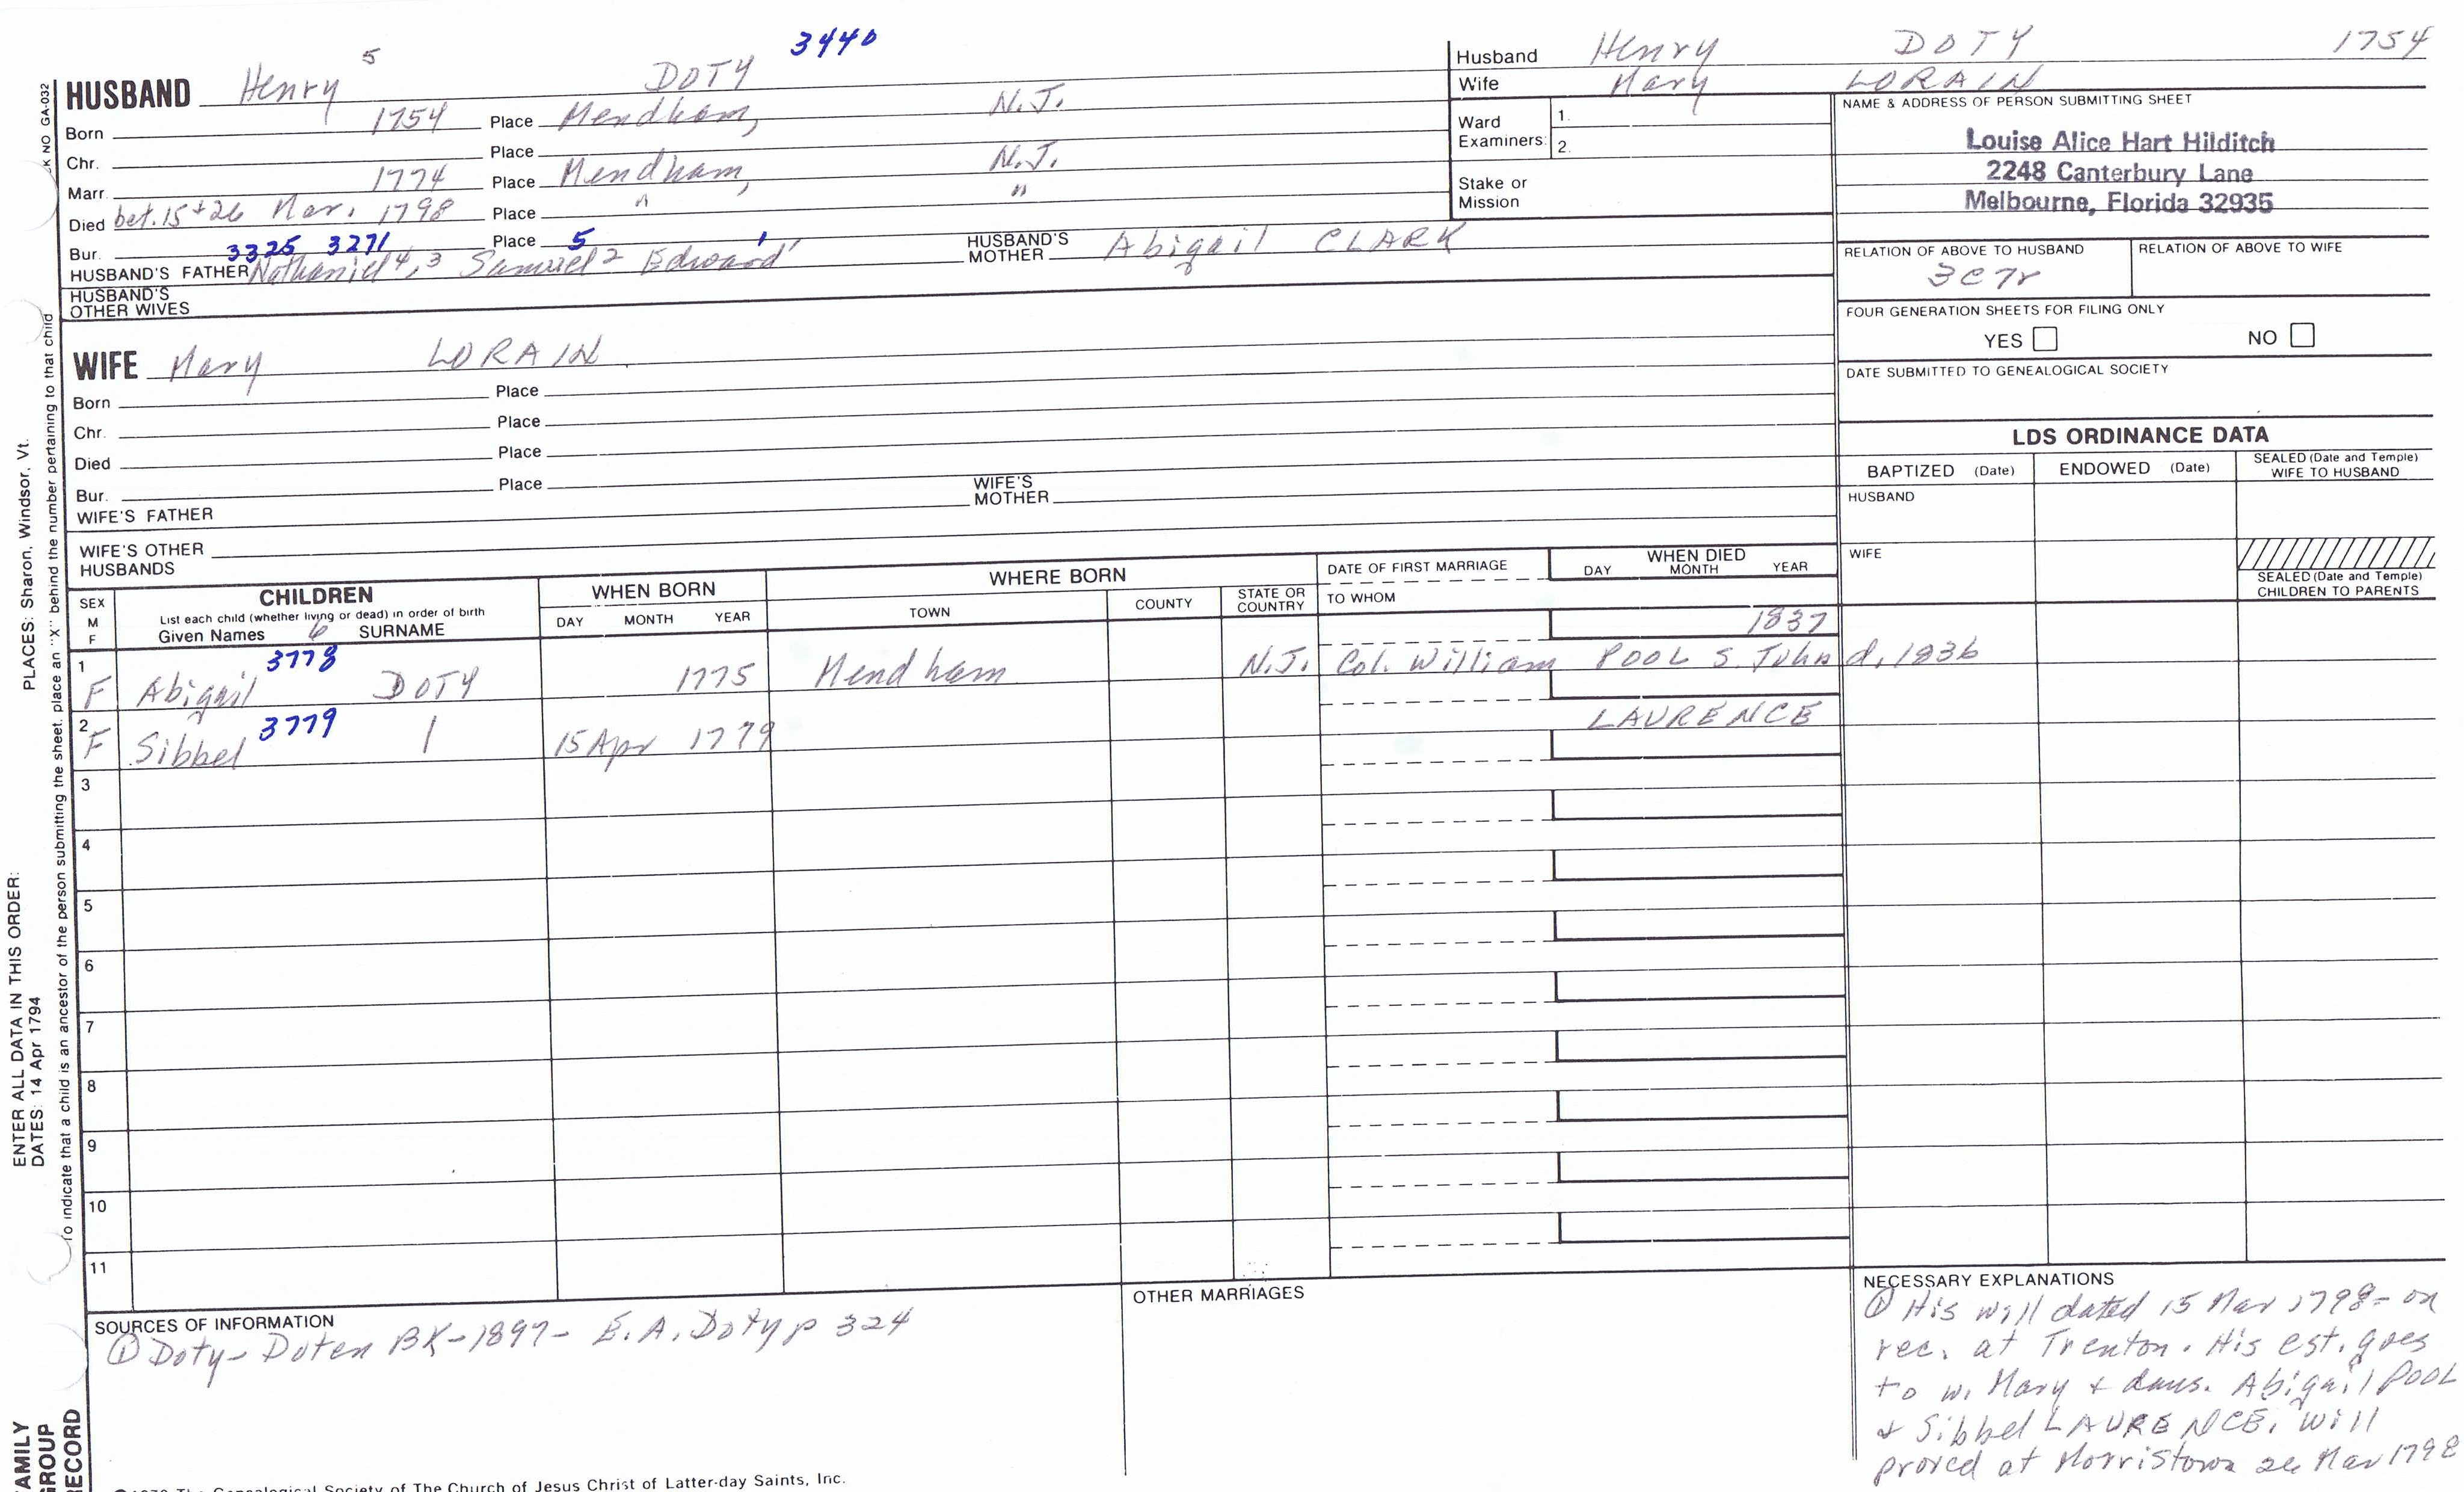 3440
HUSBAND Henry 5 DOTY
Born 1754 Place Mendham, N.J.
Chr. Place
Marr. 1774 Place Mendham, N.J.
Died bet. 15 + 26 Mar. 1798 Place " "
Bur. 3325 3271 Place 5
HUSBAND'S FATHER Nathaniel 4, 3 Samuel 2 Edward 1 HUSBAND'S MOTHER Abigail CLARK
HUSBAND'S OTHER WIVES
WIFE Mary LORAIN
Born Place
Chr. Place
Died Place
Bur. Place
WIFE'S FATHER WIFE'S MOTHER
WIFE'S OTHER HUSBANDS
Husband Henry DOTY 1754
Wife Mary LORAIN
Ward Examiners: 1.
2.
Stake or Mission
NAME & ADDRESS OF PERSON SUBMITTING SHEET
Louise Alice Hart Hilditch
2248 Canterbury Lane
Melbourne, Florida 32935
RELATION OF ABOVE TO HUSBAND RELATION OF ABOVE TO WIFE
3C7r
FOUR GENERATION SHEETS FOR FILING ONLY
YES NO
DATE SUBMITTED TO GENEALOGICAL SOCIETY
LDS ORDINANCE DATA
BAPTIZED (Date) ENDOWED (Date) SEALED (Date and Temple) WIFE TO HUSBAND
HUSBAND
WIFE
SEALED (Date and Temple) CHILDREN TO PARENTS
SEX M F
CHILDREN
List each child (whether living or dead) in order of birth
Given Names 6 SURNAME
WHEN BORN
DAY MONTH YEAR
WHERE BORN
TOWN COUNTY STATE OR COUNTRY
DATE OF FIRST MARRIAGE
TO WHOM
WHEN DIED
DAY MONTH YEAR
1837
1 3778
F Abigail DOTY 1775 Mendham N.J. Col. William POOL S. John d. 1836
2 3779
F Sibbel | 15 Apr 1779 LAURENCE
3
4
5
6
7
8
9
10
11
SOURCES OF INFORMATION
① Doty-Doten BK-1897- E.A. Doty p 324
OTHER MARRIAGES
NECESSARY EXPLANATIONS
① His will dated 15 Mar 1798- on
rec. at Trenton. His est. goes
to w. Mary + daus. Abigail POOL
+ Sibbel LAURENCE. Will
proved at Morristown 26 Mar 1798
K NO GA-032
PLACES: Sharon, Windsor, Vt.
To indicate that a child is an ancestor of the person submitting the sheet, place an "X" behind the number pertaining to that child
ENTER ALL DATA IN THIS ORDER:
DATES: 14 Apr 1794
FAMILY
GROUP
RECORD
The Genealogical Society of The Church of Jesus Christ of Latter-day Saints, Inc.